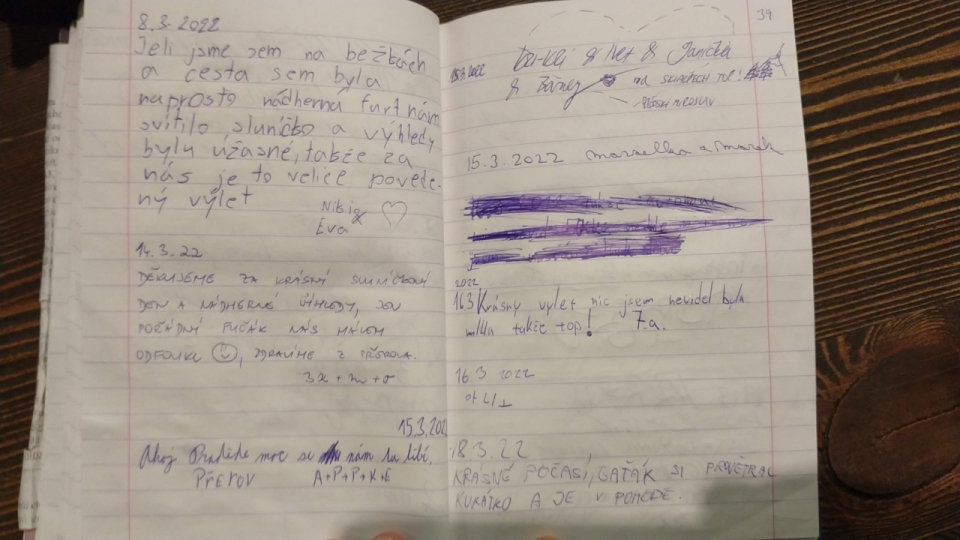 8.3.2022
Jeli jsme sem na bežkách
a cesta sem byla
naprosto nádherná furt nám
svítilo sluníčko a výhledy
byly úžasné, takže za
nás je to velice povede-
ný výlet
Nikig
Eva
14.3.22
DĚKUJEME ZA KRÁSNÝ SLUNÍČKOVÝ
DEN A NÁDHERNÉ VÝHLEDY, JEN
POŘÁDNÝ FUČÁK NÁS MÁLEM
ODFOUKL, ZDRAVÍME Z
3x + 2w + σ
15.3.202
Ahoj Praděde moc se nám tu líbí.
PŘEROV A+P+P+K+E
39
2022 & & Janička
& na
15.3.2022 a Marek
2022
16.3 Krásny vylet nic jsem nevidel byla
mlha takže top! 7.a.
16 3 2022
18.3.22
KRÁSNÉ POČASÍ, GAŤÁK SI PROVĚTRAL
KUKÁTKO A JE V POHODĚ.